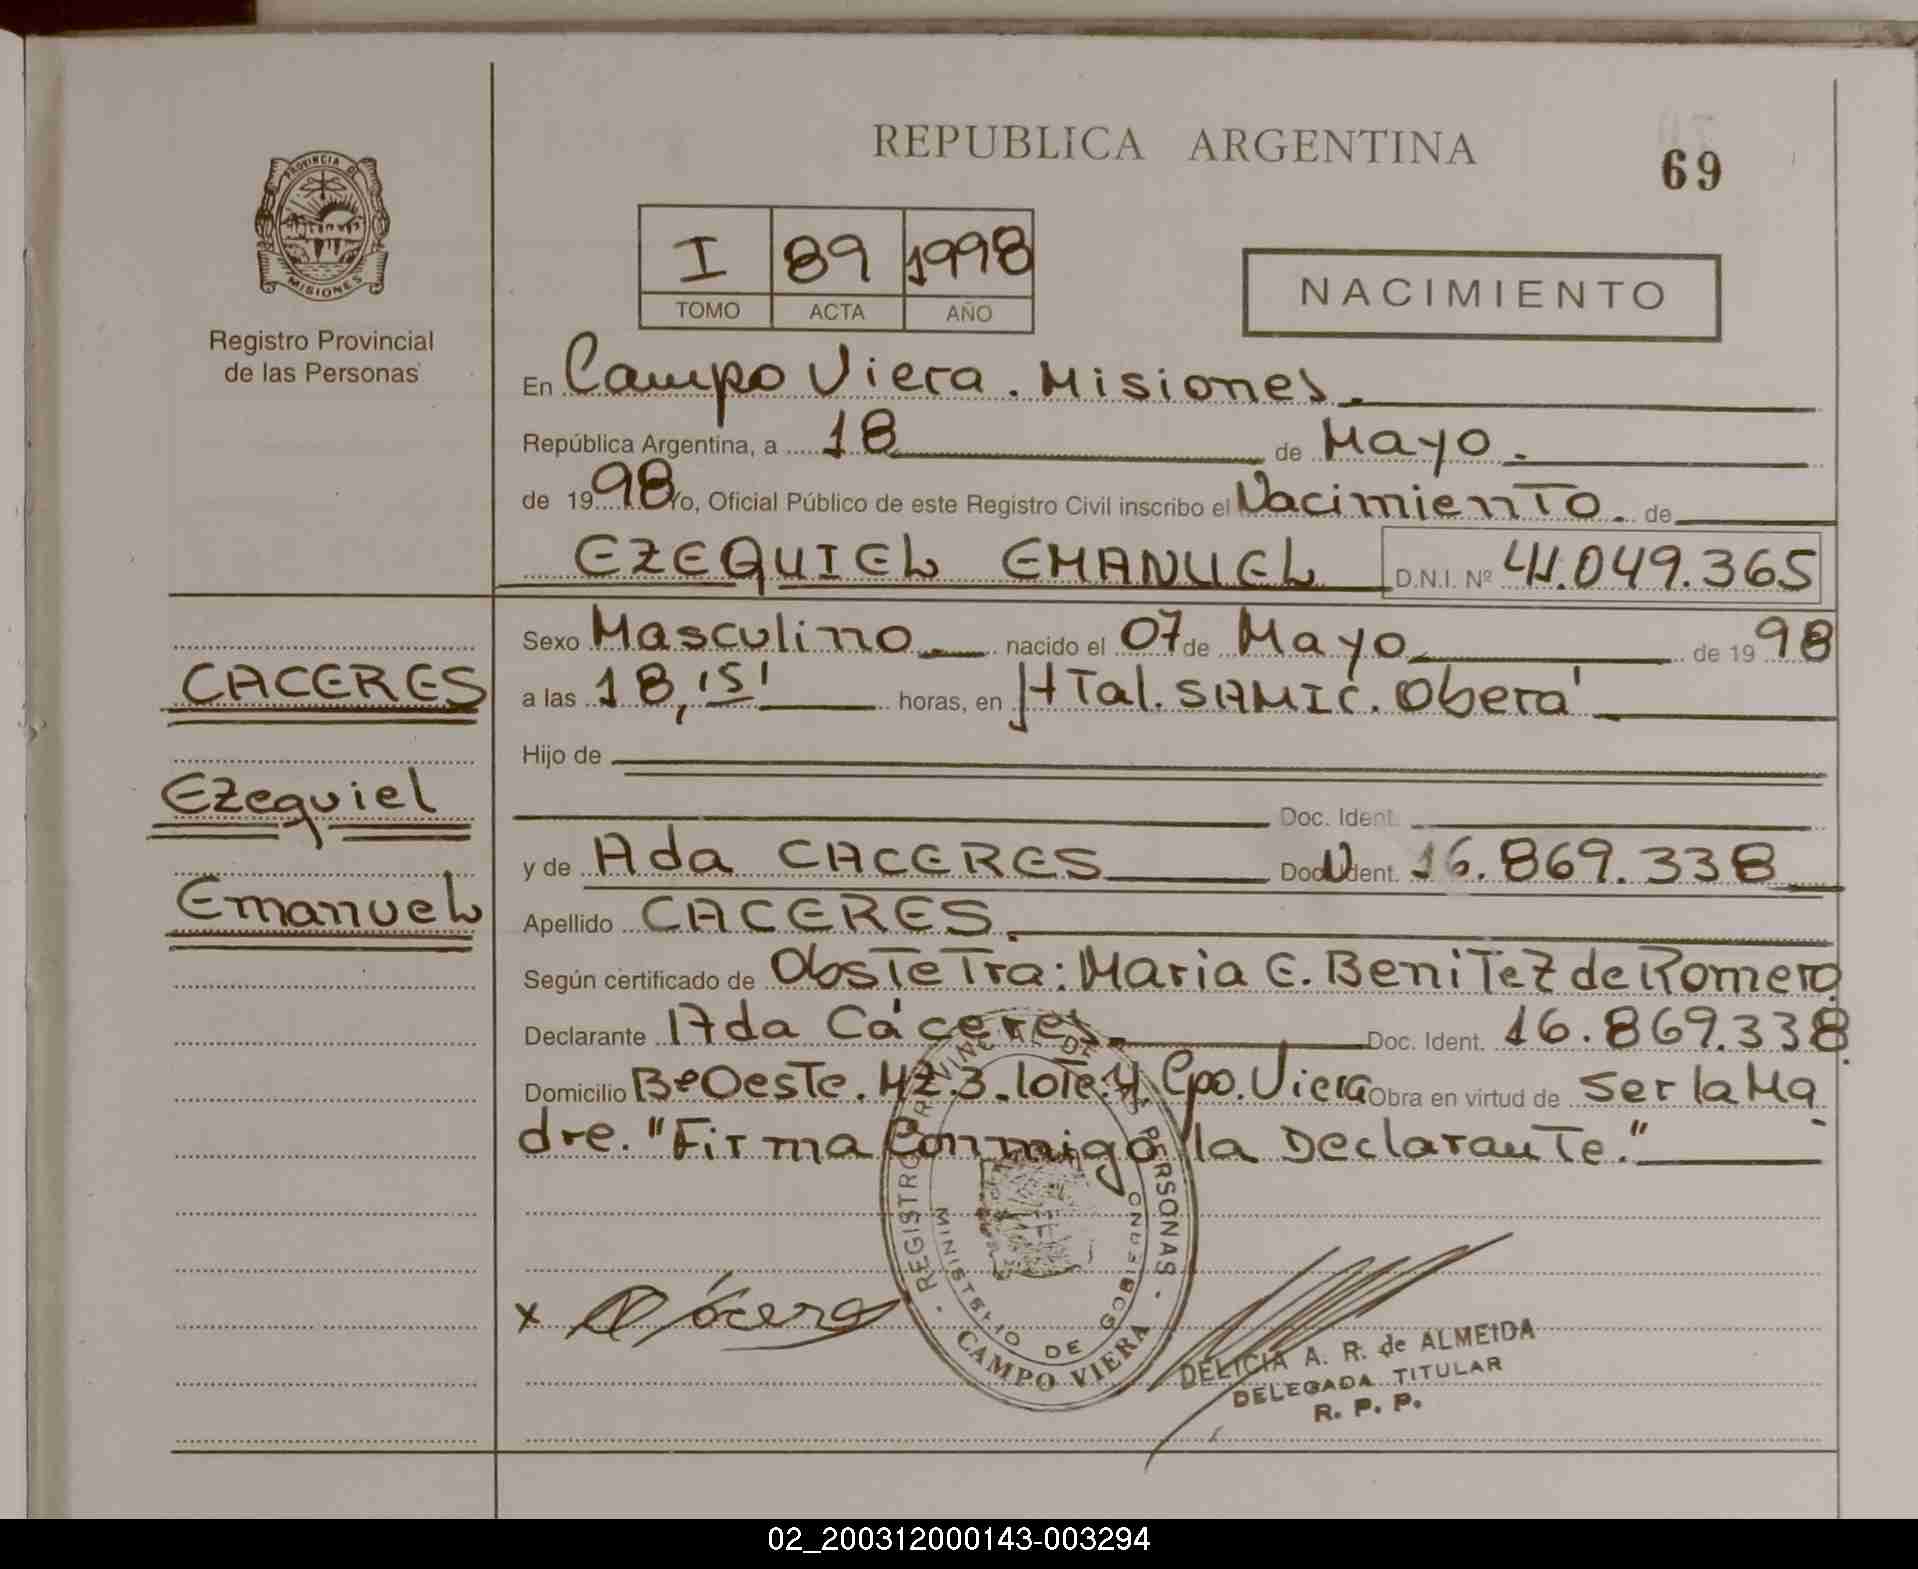 REPUBLICA ARGENTINA
69
PROVINCIA DE
MISIONES
Registro Provincial
de las Personas
I 89 1998
TOMO ACTA AÑO
NACIMIENTO
En Campo Viera. Misiones.
República Argentina, a 18 de Mayo.
de 19 98 Yo, Oficial Público de este Registro Civil inscribo el Nacimiento. de
EZEQUIEL EMANUEL D.N.I. Nº 41.049.365
CACERES
Ezequiel
Emanuel
Sexo Masculino nacido el 07 de Mayo de 19 98
a las 18,15' horas, en HTal. SAMIC. Oberá
Hijo de
Doc. Ident.
y de Ada CACERES Doc. Ident. 16.869.338
Apellido CACERES.
Según certificado de ObsTeTra: Maria E. BeniTeZ de Romero
Declarante Ada Cáceres Doc. Ident. 16.869.338
Domicilio Bº Oeste. MZ.3. loTe.4 Cpo. Viera Obra en virtud de ser la Ma
dre. "Firma Conmigo la DeclaranTe."
REGISTRO PROVINCIAL DE LAS PERSONAS
MINISTERIO DE GOBIERNO
CAMPO VIERA
x A Cáceres
DELICIA A. R. de ALMEIDA
DELEGADA TITULAR
R. P. P.
02_200312000143-003294